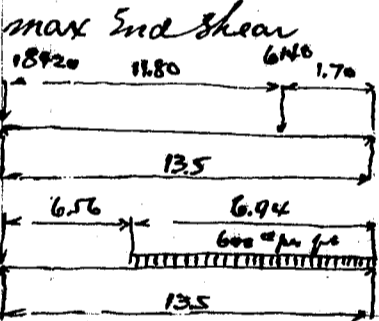 max End Shear
18420 11.80 6140 1.70
13.5
6.56 6.94
600 # per ft
13.5